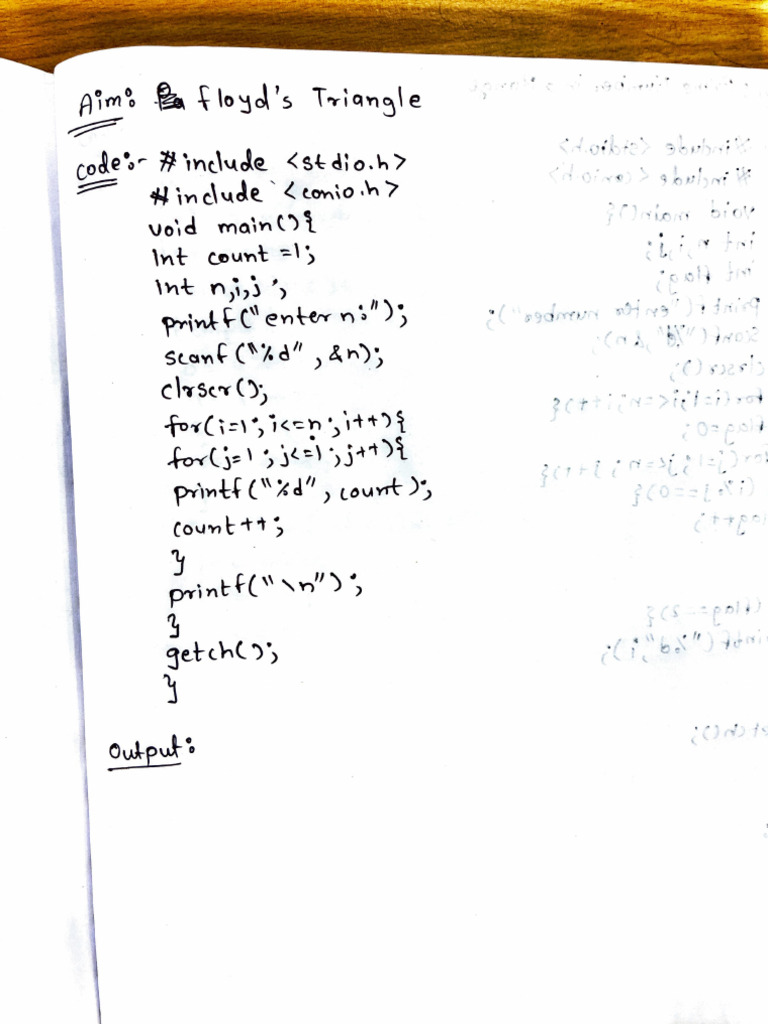 Aim: Floyd's Triangle
Code:- #include <stdio.h>
#include <conio.h>
void main(){
int count =1;
int n,i,j;
printf("enter n:");
scanf("%d", &n);
clrscr();
for(i=1;i<=n;i++){
for(j=1;j<=i;j++){
printf("%d", count);
count++;
}
printf("\n");
}
getch();
}
Output: